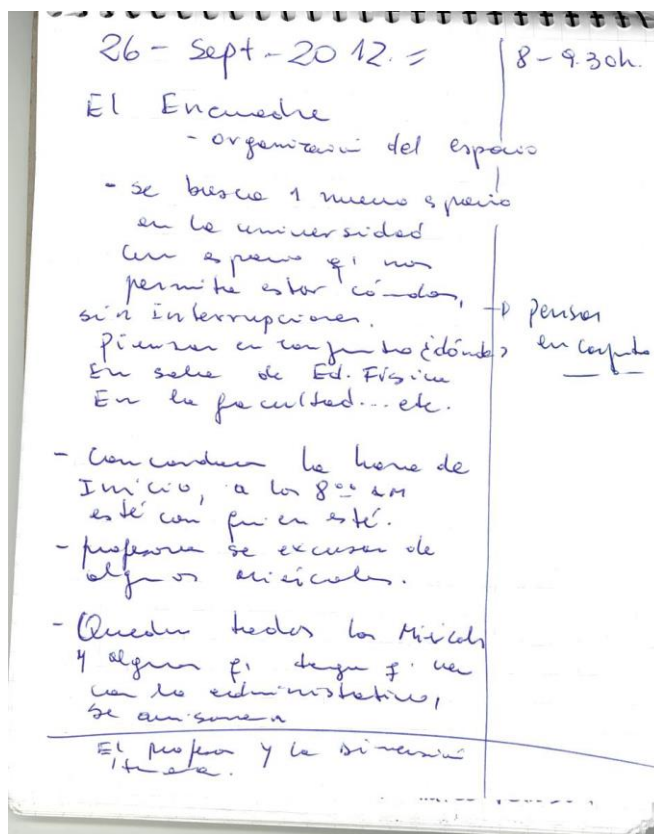 26 - Sept - 2012. =
8 - 9.30h.
El Encuadre
- organización del espacio
- se busca 1 nuevo espacio
en la universidad
un espacio q' nos
permita estar cómodos,
sin interrupciones.
→ pensar
en conjunto
Piensan en conjunto ¿dónde?
En sala de Ed. Física
En la facultad... etc.
- Concuerdan la hora de
Inicio, a las 8:00 AM
esté con quien esté.
- profesora se excusa de
algunos miércoles.
- Quedan todos los Miércoles
y alguno q' tenga q' ver
con lo administrativo,
se
El profesor y la